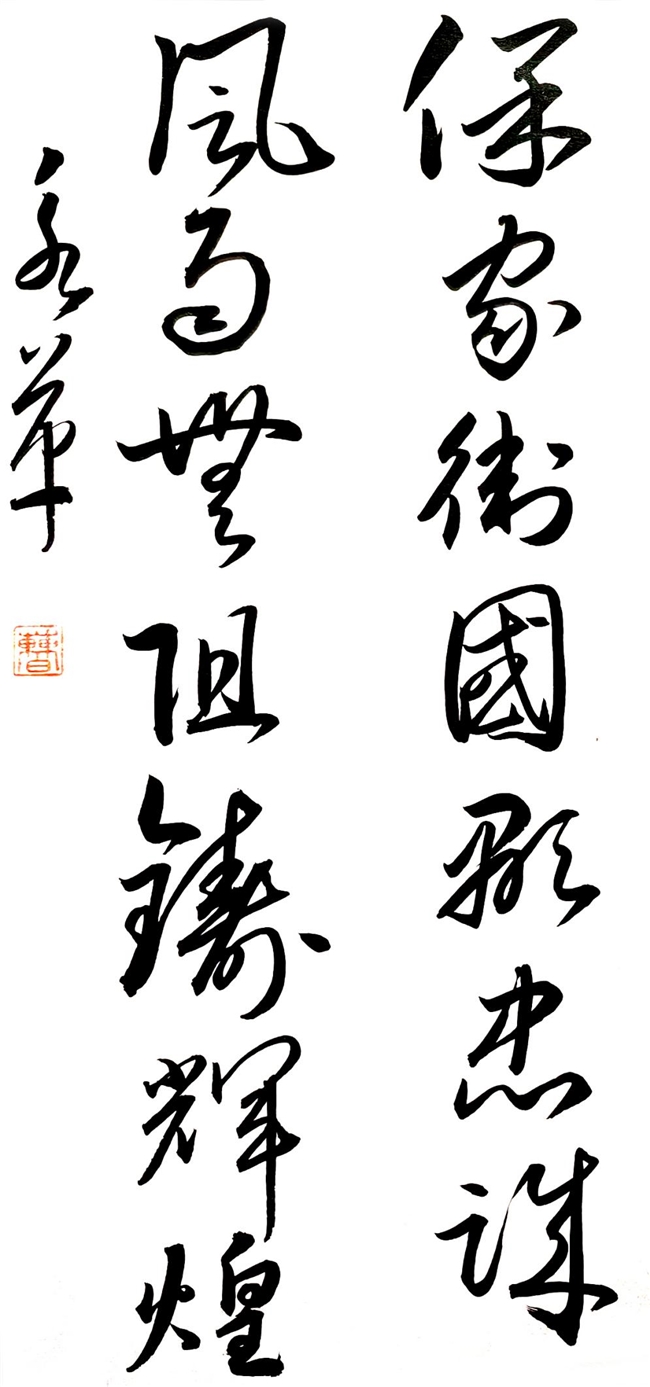 保家衛國顯忠誠
風雨無阻鑄輝煌